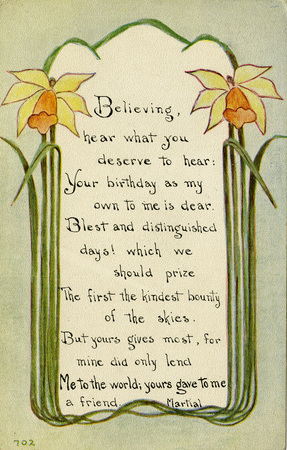 Believing,
hear what you
deserve to hear:
Your birthday as my
own to me is dear.
Blest and distinguished
days! which we
should prize
The first the kindest bounty
of the skies.
But yours gives most, for
mine did only lend
Me to the world; yours gave to me
a friend. Martial
702